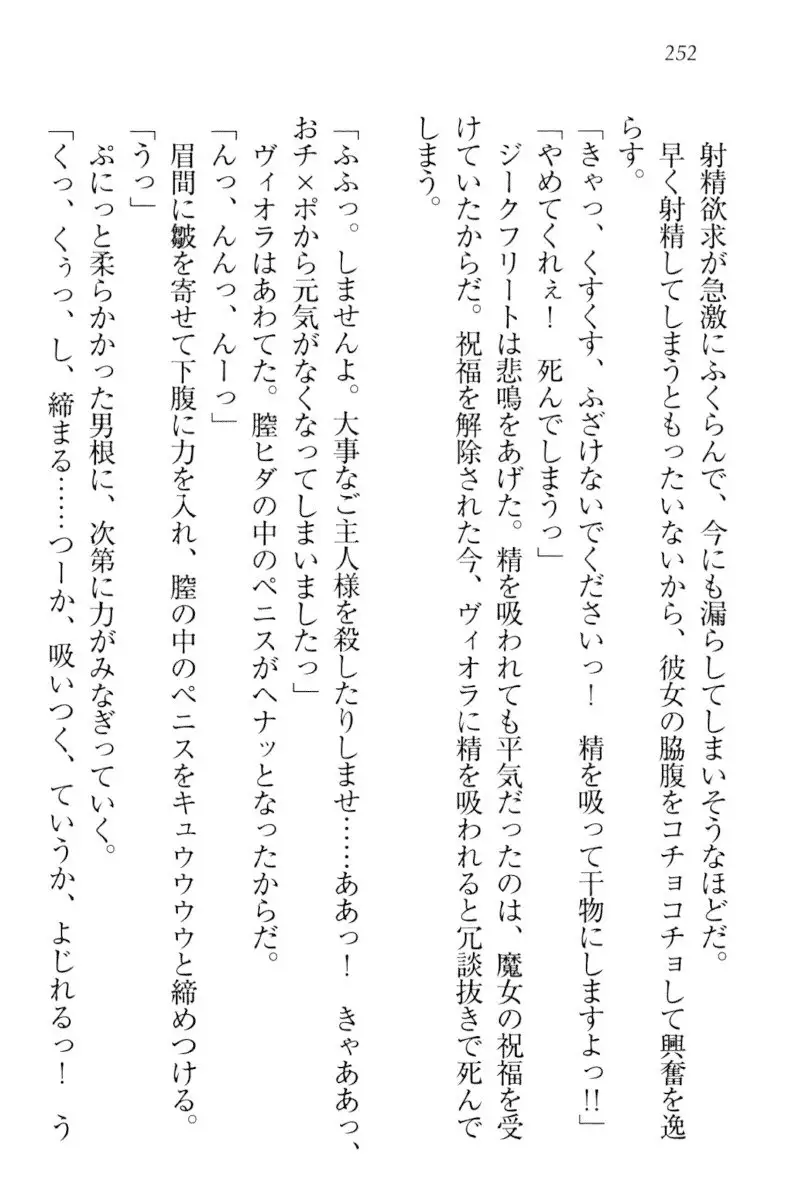 252
射精欲求が急激にふくらんで、今にも漏らしてしまいそうなほどだ。
早く射精してしまうともったいないから、彼女の脇腹をコチョコチョして興奮を逸
らす。
「きゃっ、くすくす、ふざけないでくださいっ！　精を吸って干物にしますよっ!!」
「やめてくれぇ！　死んでしまうっ」
ジークフリートは悲鳴をあげた。精を吸われても平気だったのは、魔女の祝福を受
けていたからだ。祝福を解除された今、ヴィオラに精を吸われると冗談抜きで死んで
しまう。
「ふふっ。しませんよ。大事なご主人様を殺したりしませ……ああっ！　きゃああっ、
おチ×ポから元気がなくなってしまいましたっ」
ヴィオラはあわてた。膣ヒダの中のペニスがヘナッとなったからだ。
「んっ、んんっ、んーっ」
眉間に皺を寄せて下腹に力を入れ、膣の中のペニスをキュウウウウと締めつける。
「うっ」
ぷにっと柔らかかった男根に、次第に力がみなぎっていく。
「くっ、くぅっ、し、締まる……つーか、吸いつく、ていうか、よじれるっ！　う